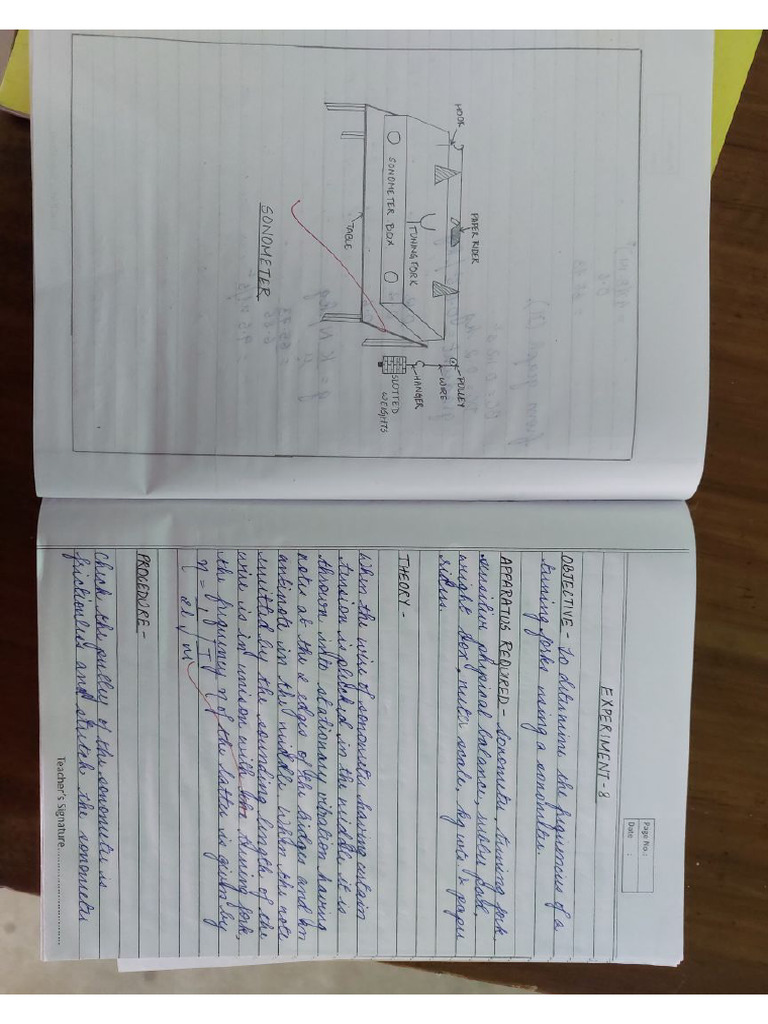 HOOK
PAPER RIDER
PULLEY
WIRE
HANGER
SLOTTED
WEIGHTS
TUNING FORK
SONOMETER BOX
TABLE
SONOMETER
Page No.:
Date :
EXPERIMENT-8
OBJECTIVE - To determine the frequencies of a
tuning forks using a sonometer.
APPARATUS REQUIRED - Sonometer, tuning fork,
sensitive physical balance, rubber pad,
weight box, meter scale, kg wts & paper
riders.
THEORY -
When the wire of sonometer having certain
tension is plucked in the middle, it is
thrown into stationary vibration having
nodes at the 2 edges of the bridges and an
antinode in the middle. When the note
emitted by the sounding length of the
wire is in unison with tuning fork,
the frequency n of the latter is given by
n = 1/2l √T/m
PROCEDURE -
Check the pulley of the sonometer is
frictionless and stretch the sonometer
Teacher's Signature